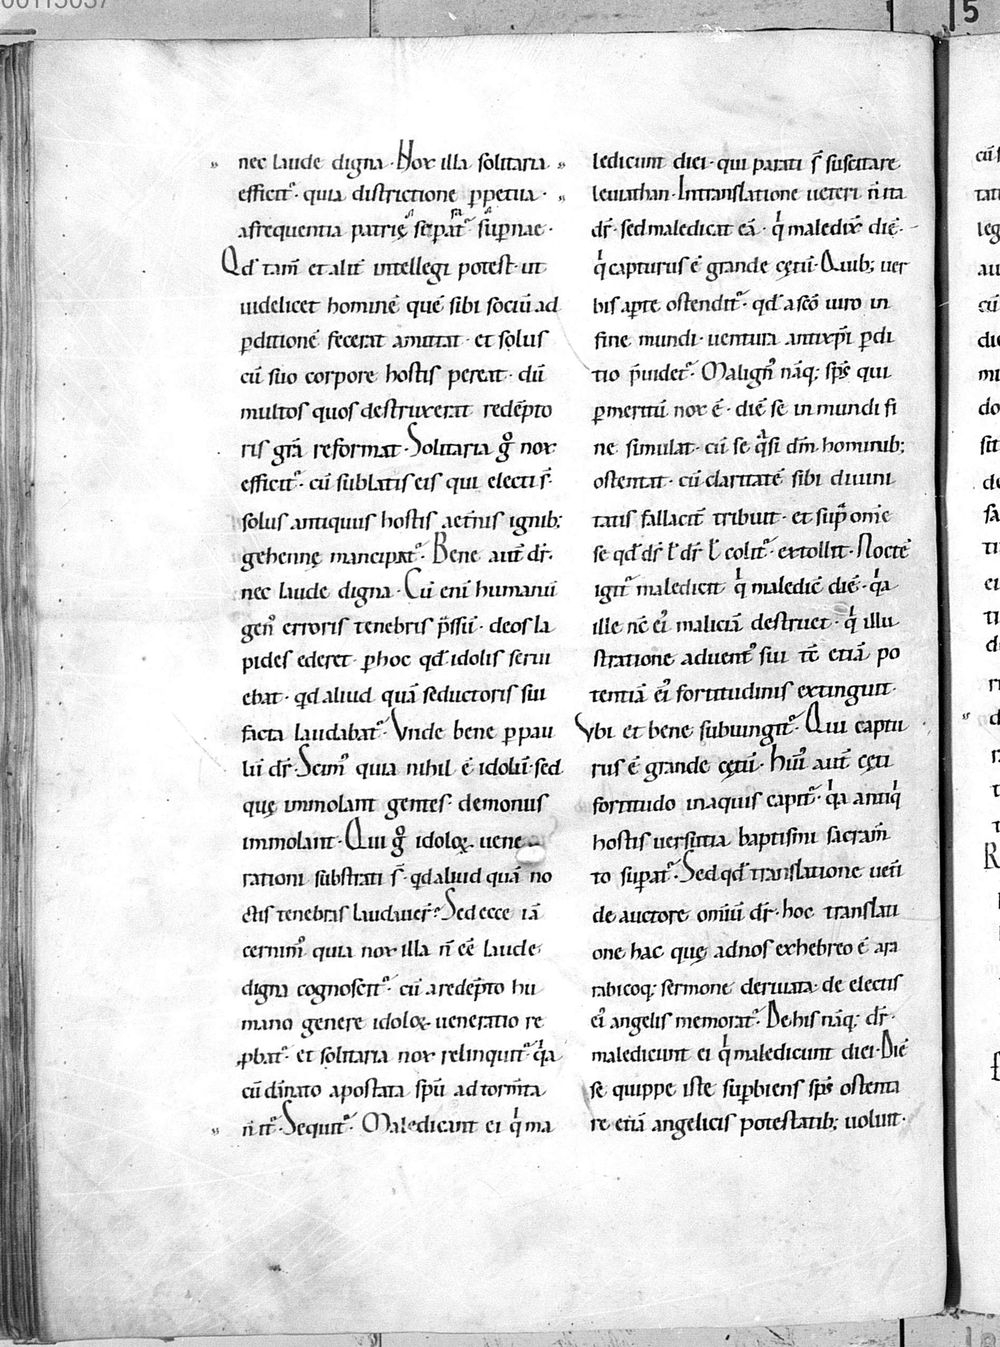 nec laude digna· Nox illa solitaria
efficit᷑· quia districtione ꝑpetua·
a frequentia patrię sepat᷑ suꝑnae·
Qđ tam̄ et alit̄ intellegi potest· ut
uidelicet hominē quē sibi sociū ad
ꝑditionē fecerat amittat· et solus
cū suo corpore hostis pereat· dū
multos quos destruxerat redēpto
ris gr̄a reformat· Solitaria gͦ nox
efficit᷑· cū sublatis eis qui electi s̄·
solus antiquus hostis aet̄nis ignib;
gehennę mancipat᷑· Bene aut̄ dr̄·
nec laude digna· Cū eni humanū
gen᷒ erroris tenebris p̄ssū· deos la
pides ederet· ꝑ hoc qđ idolis serui
ebat· qđ aliud quā seductoris sui
facta laudabat᷑· Vnde bene ꝑ pau
lū dr̄· Scim᷒ quia nihil ē idolū· sed
quę immolant gentes· demoniis
immolant· Qui gͦ idoloꝝ uene
rationi substrati s̄· qđ aliud quā no
ctis tenebras laudauer̄? Sed ecce iā
cernim᷒ quia nox illa n̄ eē laude
digna cognoscit᷑· cū a redēpto hu
mano genere idoloꝝ ueneratio re
ꝓbat᷑· et solitaria nox relinquit᷑· qͥa
cū dānato apostata spū ad torm̄ta
n̄ it᷑· Sequit᷑· Maledicant ei qͥ ma
ledicunt diei· qui parati s̄ suscitare
leuiathan· In translatione ueteri n̄ ita
dr̄· sed maledicat eā· qͥ maledix̄ diē·
qͥ capturus ē grande cętū· Quib; uer
bis aꝑte ostendit᷑· qđ a scō uiro in
fine mundi· uentura antixp̄i ꝑdi
tio p̄uidet᷑· Malign᷒ nāq; sps̄ qui
ꝑ meritū nox ē· diē se in mundi fi
ne simulat· cū se qͣsi dm̄ hominib;
ostentat· cū claritatē sibi diuini
tatis fallacit̄ tribuit· et suꝑ om̄e
se qđ dr̄ ł dr̄ ł colit᷑· extollit· Noctē
igit᷑ maledicit qͥ maledic̄ diē· qͥa
ille nc̄ ei᷒ maliciā destruet· qͥ illu
stratione aduent᷒ sui tc̄ etiā po
tentiā ei᷒ fortitudinis extinguit·
Vbi et bene subiungit᷑· Qui captu
rus ē grande cętū· Hui᷒ aut̄ cęti
fortitudo in aquis capit᷑· qͥa antiqͥ
hostis uersutia baptismi sacram̄
to suꝑat᷑· Sed qđ translatione uet̄i
de auctore omiū dr̄· hoc translati
one hac quę ad nos ex hebreo ē ara
rabicoq; sermone deriuata· de electis
ei᷒ angelis memorat᷑· De his nāq; dr̄·
maledicunt ei qͥ maledicunt diei· Diē
se quippe iste suꝑbiens sps̄ ostenta
re etiā angelicis potestatib; uoluit·